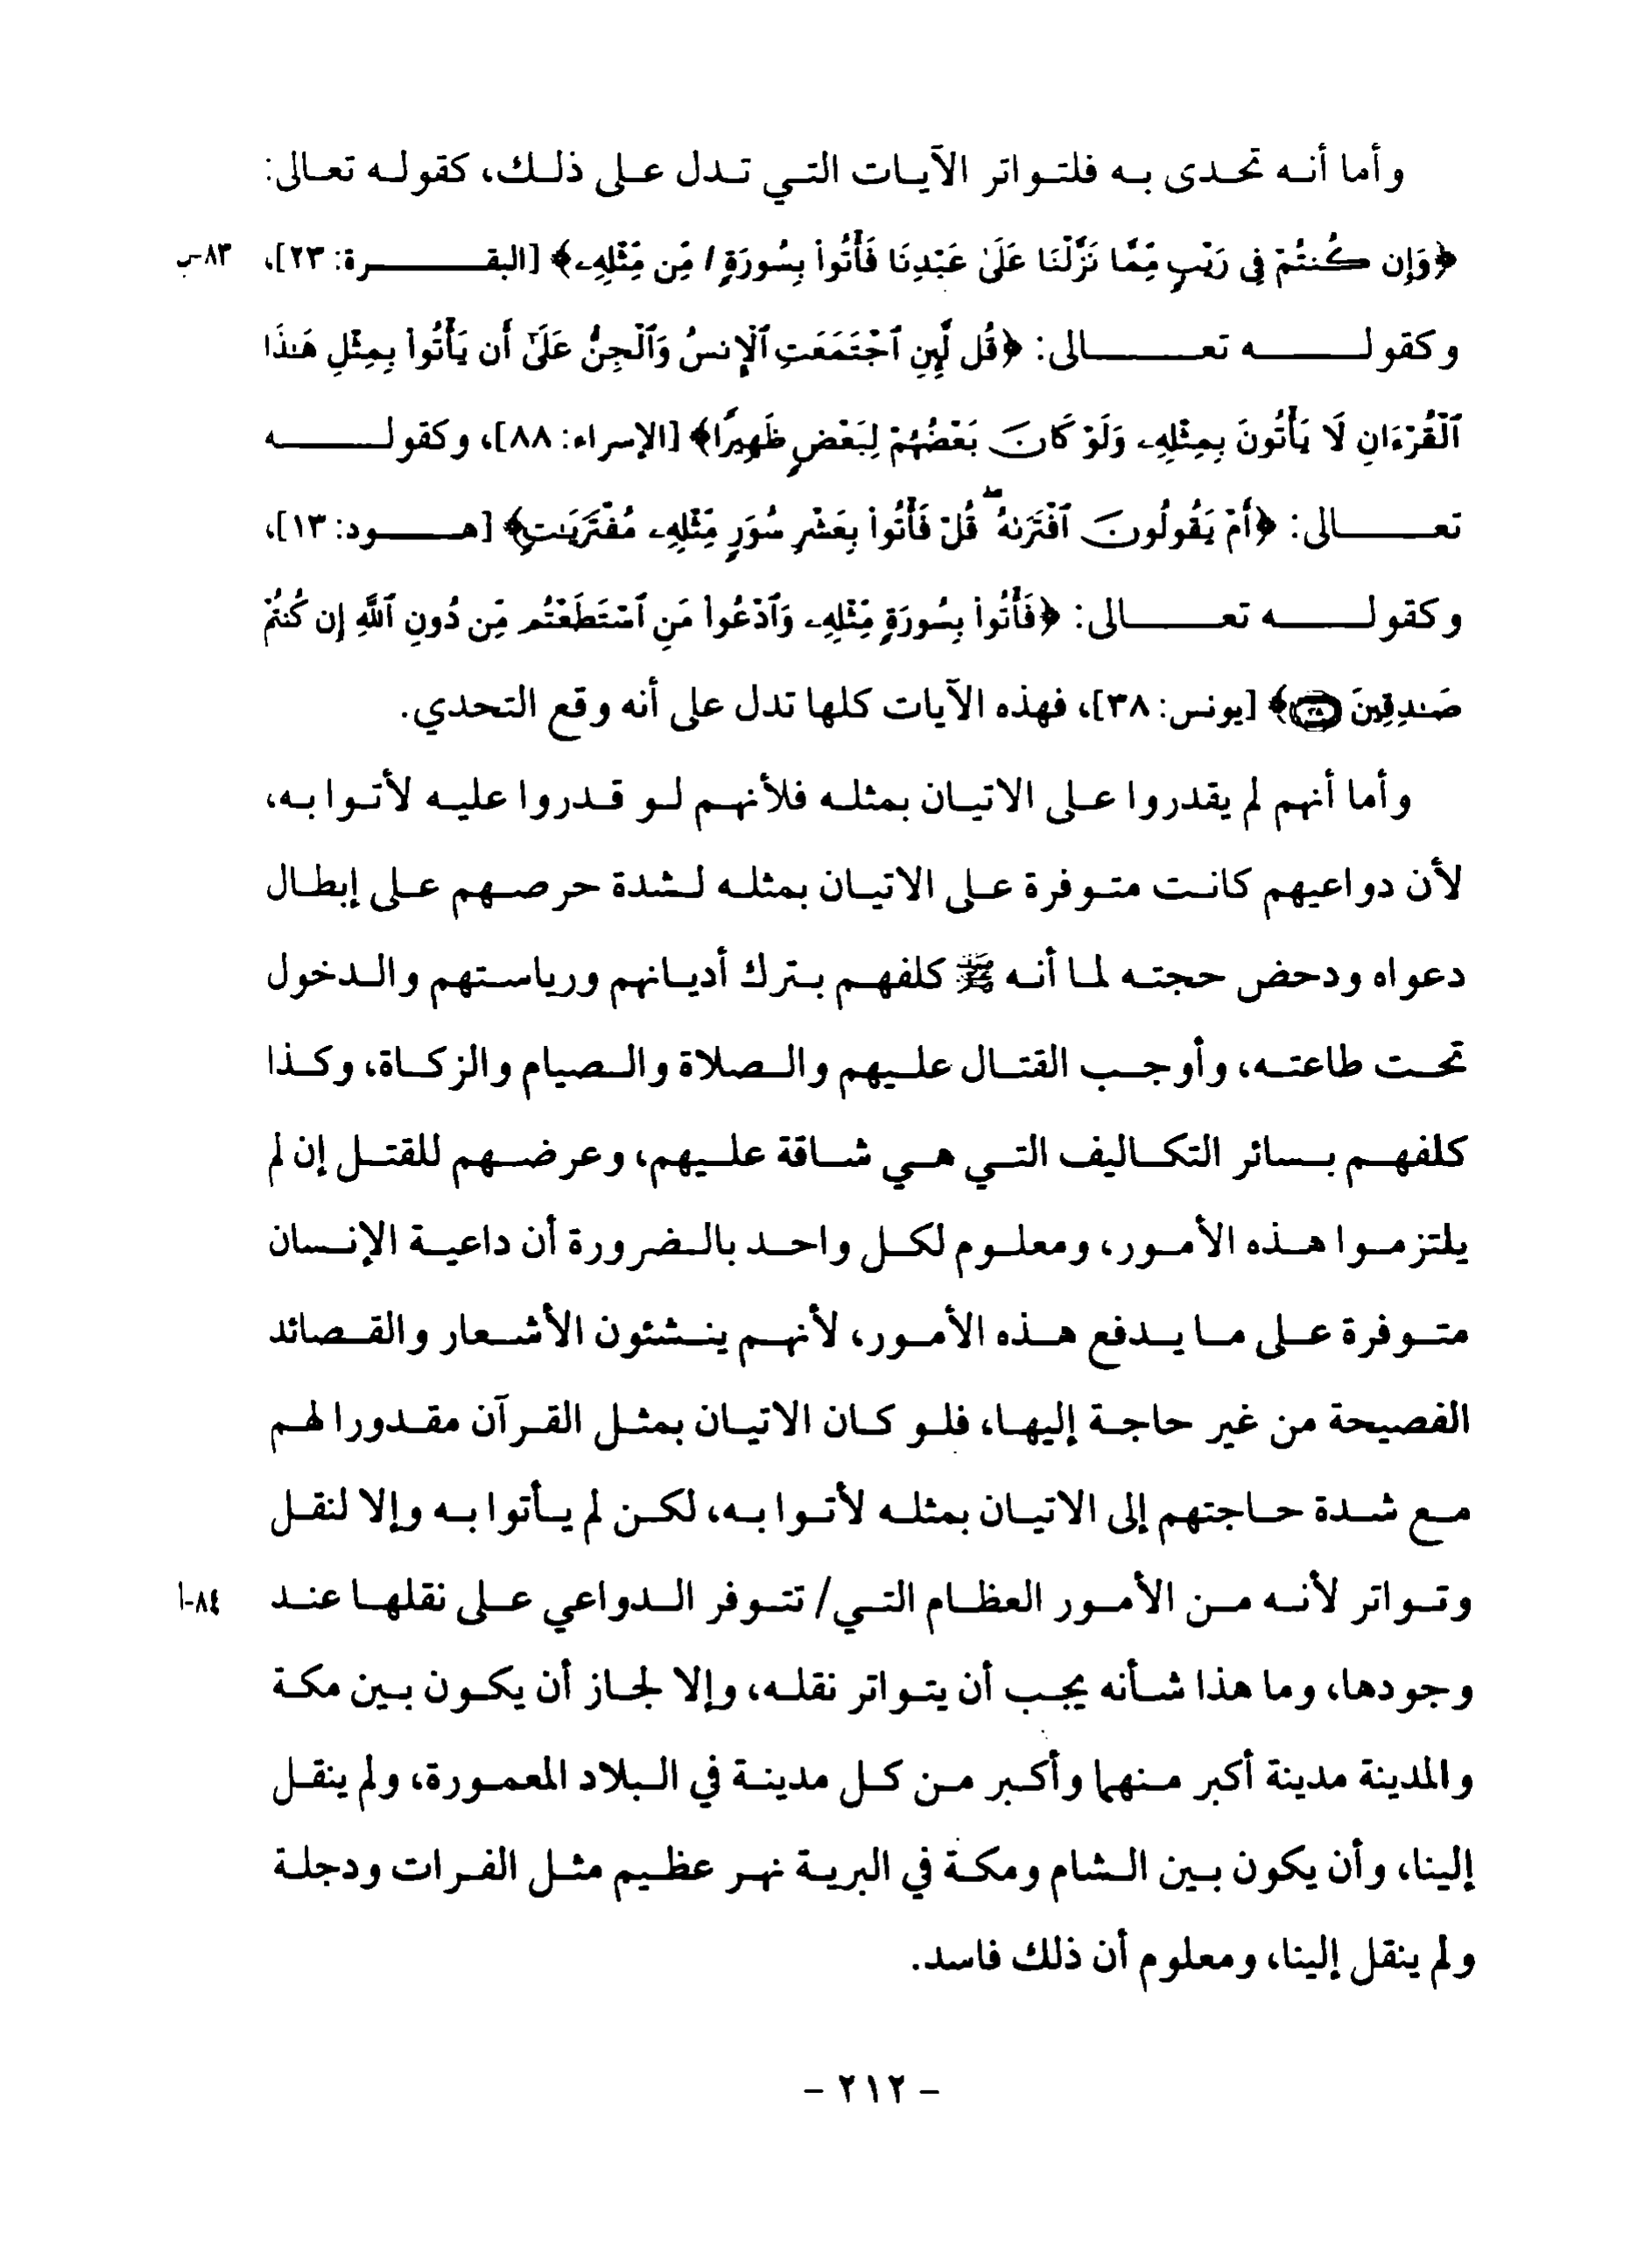 وأما أنه تحدى به فلتواتر الآيات التي تدل على ذلك، كقوله تعالى:
﴿وَإِن كُنتُمْ فِى رَيْبٍ مِّمَّا نَزَّلْنَا عَلَىٰ عَبْدِنَا فَأْتُوا۟ بِسُورَةٍ / مِّن مِّثْلِهِۦ﴾ [البقرة: ٢٣]، ٨٣-ب
وكقوله تعالى: ﴿قُل لَّئِنِ ٱجْتَمَعَتِ ٱلْإِنسُ وَٱلْجِنُّ عَلَىٰٓ أَن يَأْتُوا۟ بِمِثْلِ هَـٰذَا
ٱلْقُرْءَانِ لَا يَأْتُونَ بِمِثْلِهِۦ وَلَوْ كَانَ بَعْضُهُمْ لِبَعْضٍ ظَهِيرًا﴾ [الإسراء: ٨٨]، وكقوله
تعالى: ﴿أَمْ يَقُولُونَ ٱفْتَرَىٰهُ ۖ قُلْ فَأْتُوا۟ بِعَشْرِ سُوَرٍ مِّثْلِهِۦ مُفْتَرَيَـٰتٍ﴾ [هود: ١٣]،
وكقوله تعالى: ﴿فَأْتُوا۟ بِسُورَةٍ مِّثْلِهِۦ وَٱدْعُوا۟ مَنِ ٱسْتَطَعْتُم مِّن دُونِ ٱللَّهِ إِن كُنتُمْ
صَـٰدِقِينَ ٣٨﴾ [يونس: ٣٨]، فهذه الآيات كلها تدل على أنه وقع التحدي.
وأما أنهم لم يقدروا على الاتيان بمثله فلأنهم لو قدروا عليه لأتوا به،
لأن دواعيهم كانت متوفرة على الاتيان بمثله لشدة حرصهم على إبطال
دعواه ودحض حجته لما أنه ﷺ كلفهم بترك أديانهم ورياستهم والدخول
تحت طاعته، وأوجب القتال عليهم والصلاة والصيام والزكاة، وكذا
كلفهم بسائر التكاليف التي هي شاقة عليهم، وعرضهم للقتل إن لم
يلتزموا هذه الأمور، ومعلوم لكل واحد بالضرورة أن داعية الإنسان
متوفرة على ما يدفع هذه الأمور، لأنهم ينشئون الأشعار والقصائد
الفصيحة من غير حاجة إليها، فلو كان الاتيان بمثل القرآن مقدورا لهم
مع شدة حاجتهم إلى الاتيان بمثله لأتوا به، لكن لم يأتوا به وإلا لنقل
وتواتر لأنه من الأمور العظام التي/ تتوفر الدواعي على نقلها عند ٨٤-أ
وجودها، وما هذا شأنه يجب أن يتواتر نقله، وإلا لجاز أن يكون بين مكة
والمدينة مدينة أكبر منهما وأكبر من كل مدينة في البلاد المعمورة، ولم ينقل
إلينا، وأن يكون بين الشام ومكة في البرية نهر عظيم مثل الفرات ودجلة
ولم ينقل إلينا، ومعلوم أن ذلك فاسد.
- ٢١٢ -